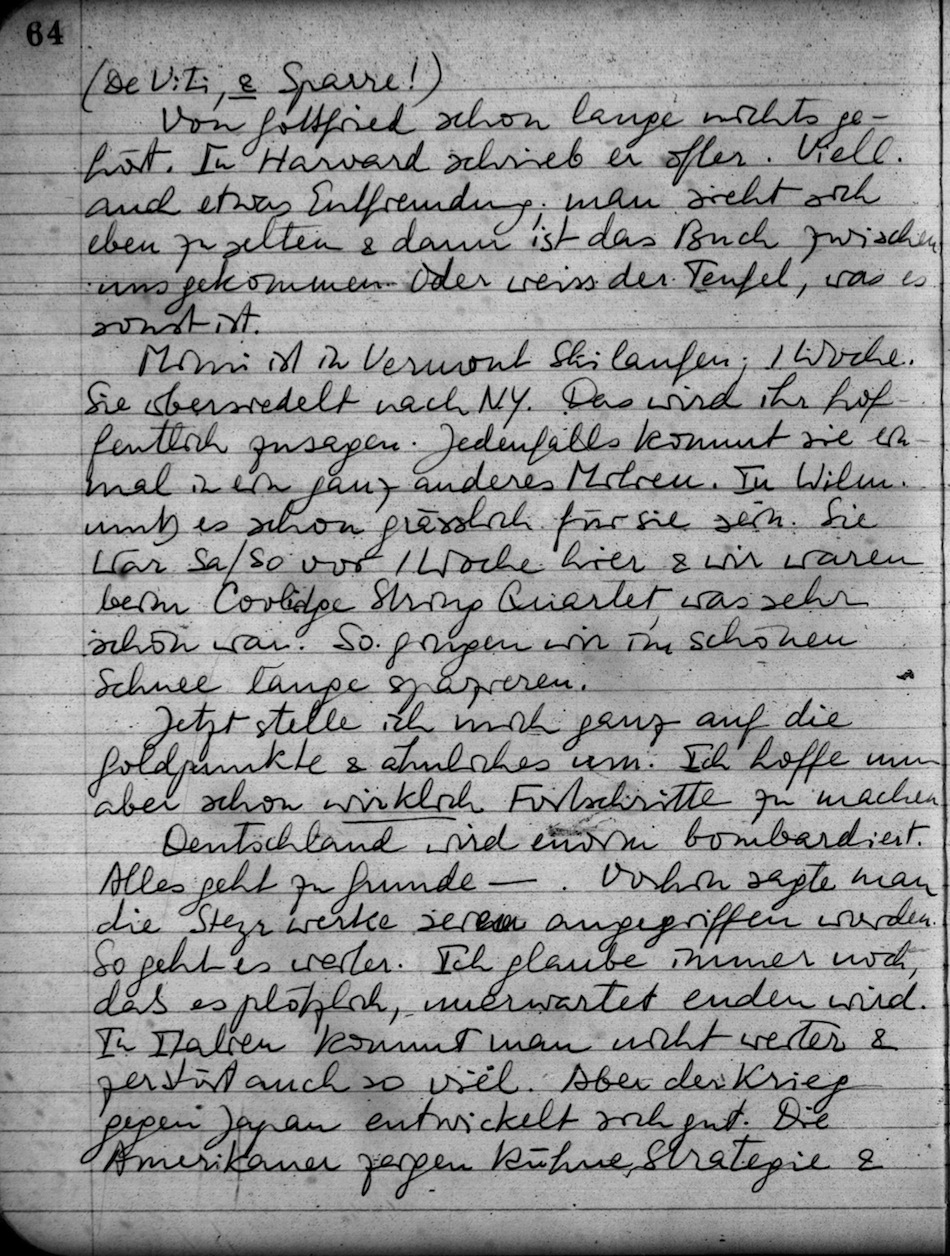 64
(De Viti, & Sparre!)
Von Gottfried schon lange nichts ge-
hört. In Harvard schrieb er öfter. Viell.
auch etwas Entfremdung; man sieht sich
eben zu selten & dann ist das Buch zwischen
uns gekommen. Oder weiss der Teufel, was es
sonst ist.
Mimi ist in Vermont Skilaufen; 1 Woche.
Sie übersiedelt nach N.Y. Das wird ihr hof-
fentlich zusagen. Jedenfalls kommt sie ein-
mal in ein ganz anderes Milieu. In Wilm.
muß es schon grässlich für sie sein. Sie
war Sa/So vor 1 Woche hier & wir waren
beim Coolidge String Quartet, was sehr
schön war. So gingen wir im schönen
Schnee lange spazieren.
Jetzt stelle ich mich ganz auf die
Goldpunkte & ähnliches um. Ich hoffe nun
aber schon wirklich Fortschritte zu machen
Deutschland wird enorm bombardiert.
Alles geht zu Grunde — . Vorhin sagte man
die Steyr werke seien angegriffen worden.
So geht es weiter. Ich glaube immer noch,
daß es plötzlich, unerwartet enden wird.
In Italien kommt man nicht weiter &
zerstört auch so viel. Aber der Krieg
gegen Japan entwickelt sich gut. Die
Amerikaner zeigen kühne Strategie &